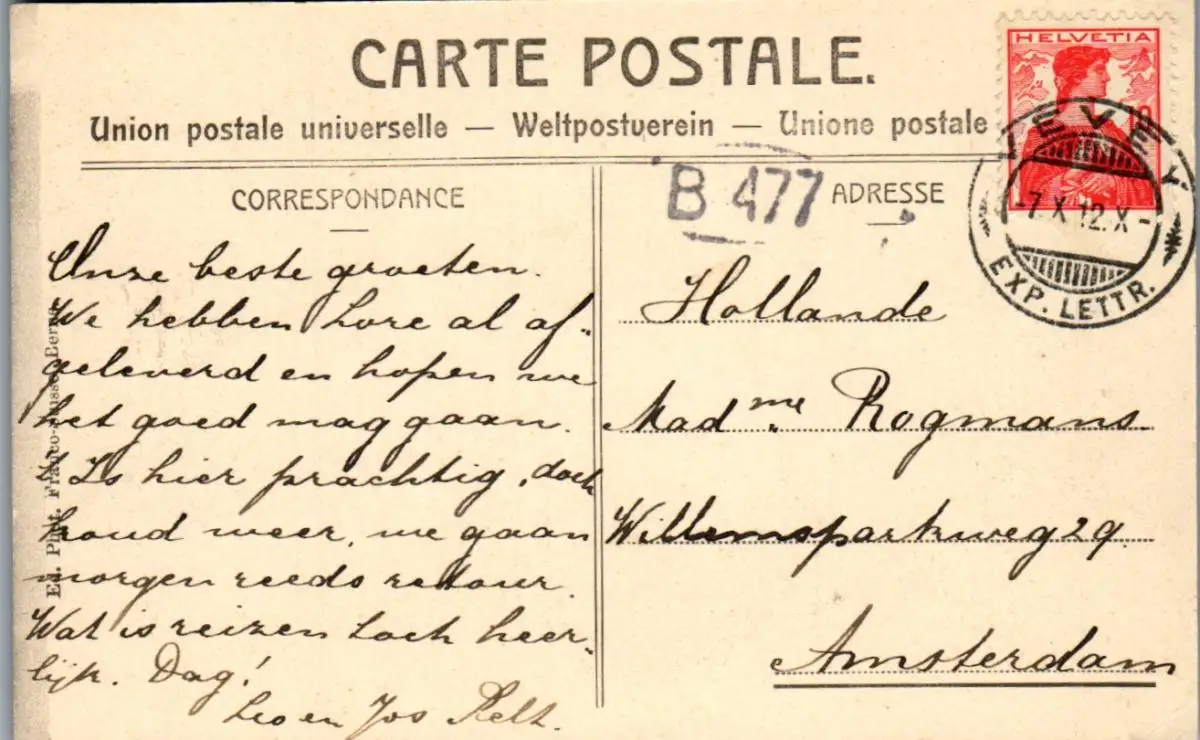 CARTE POSTALE.
Union postale universelle — Weltpostverein — Unione postale
HELVETIA
10
VEVEY
-7.X.12.X-
EXP. LETTR.
B 477
CORRESPONDANCE
Onze beste groeten.
We hebben Lore al af-
geleverd en hopen we
het goed mag gaan.
't Is hier prachtig, doch
koud weer, we gaan
morgen reeds retour.
Wat is reizen toch heer-
lijk. Dag!
Leo en Jos
ADRESSE
Hollande
Madme. Rogmans
Willemsparkweg 29.
Amsterdam
Ed. Phot. Franco-Suisse, Berne